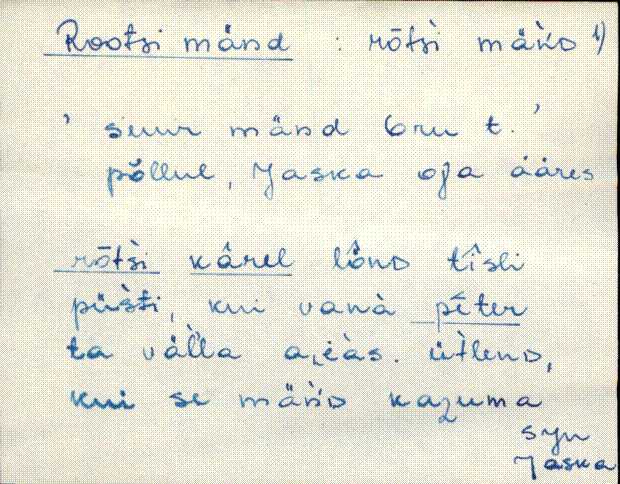 Rootsi mänd : rōtsi mäǹD 1)
' suur mänd Oru t. '
põllul, Jaska oja ääres
rōtsì kārel lȭnD tîsli
püšti, kui vanà pēter
ta välla aièas. ütlenD,
kui se mäǹD kazuma
syn
Jaska